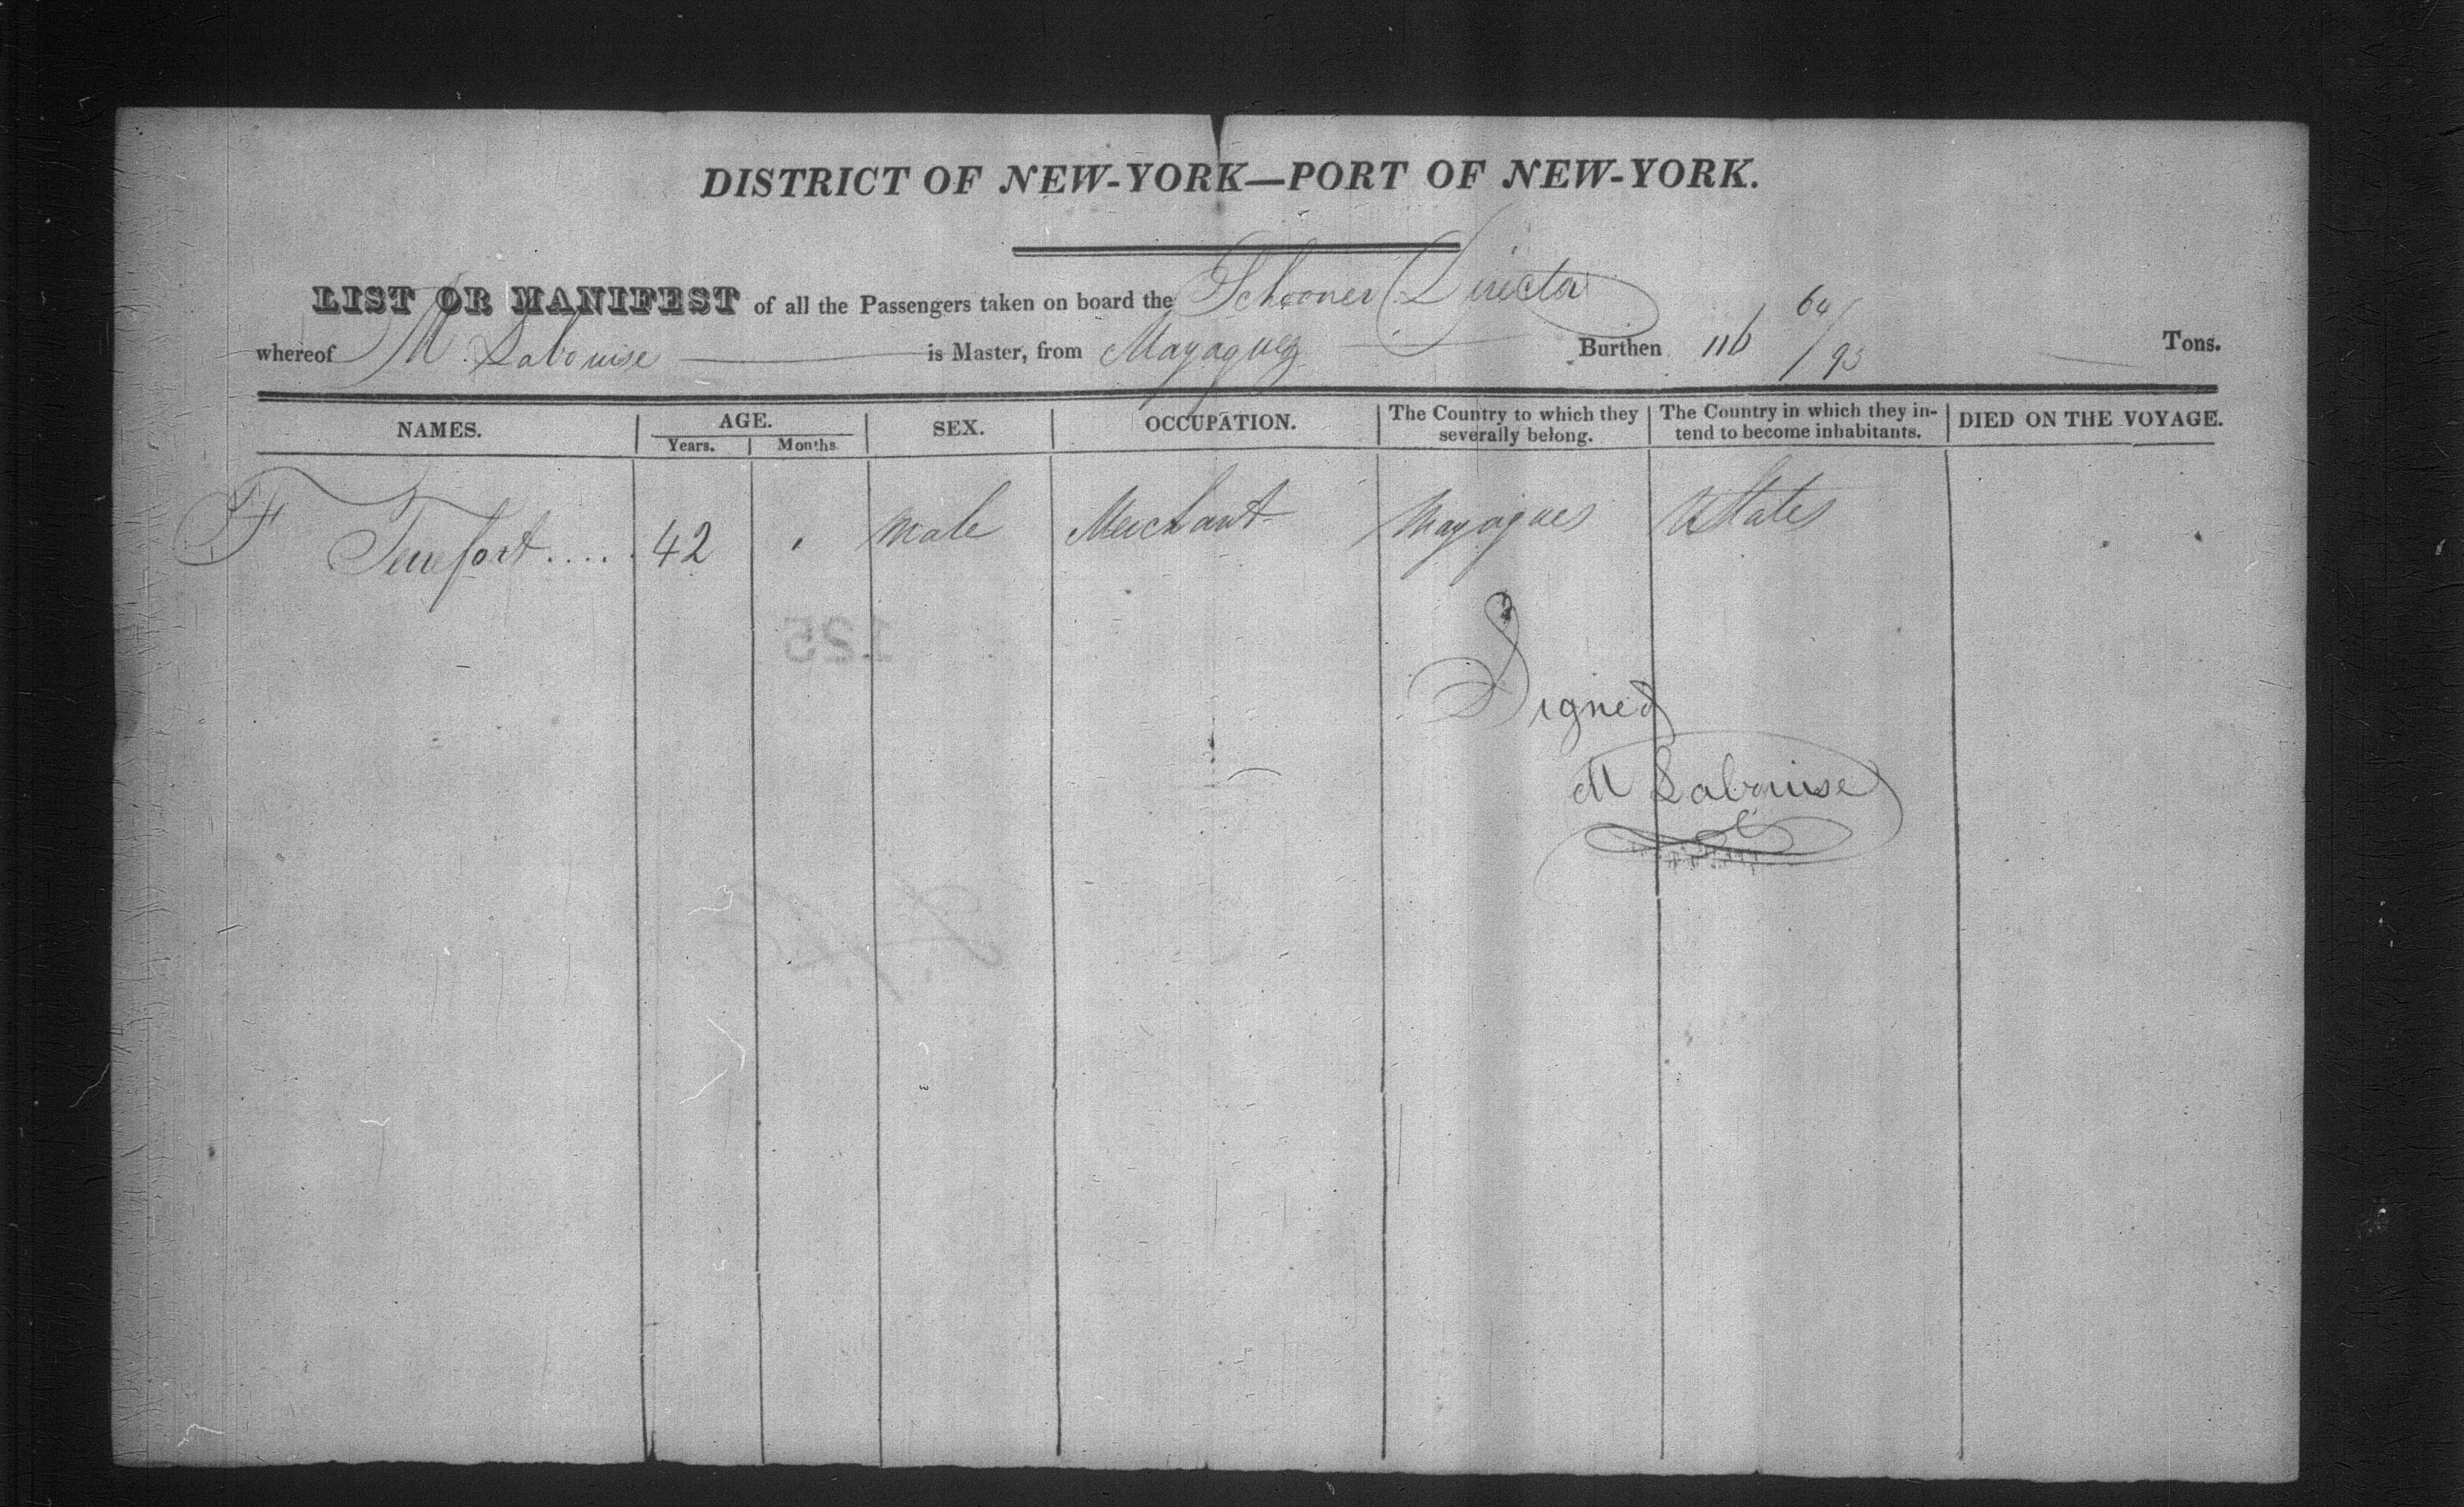 DISTRICT OF NEW-YORK—PORT OF NEW-YORK.
LIST OR MANIFEST of all the Passengers taken on board the Schooner Director
whereof M. Labouise is Master, from Mayaguez Burthen 116 64/95 Tons.
NAMES. AGE. SEX. OCCUPATION. The Country to which they severally belong. The Country in which they intend to become inhabitants. DIED ON THE VOYAGE.
Years. Months.
F 42 Male Merchant Mayagues UStates
125
Signed
M Labouise